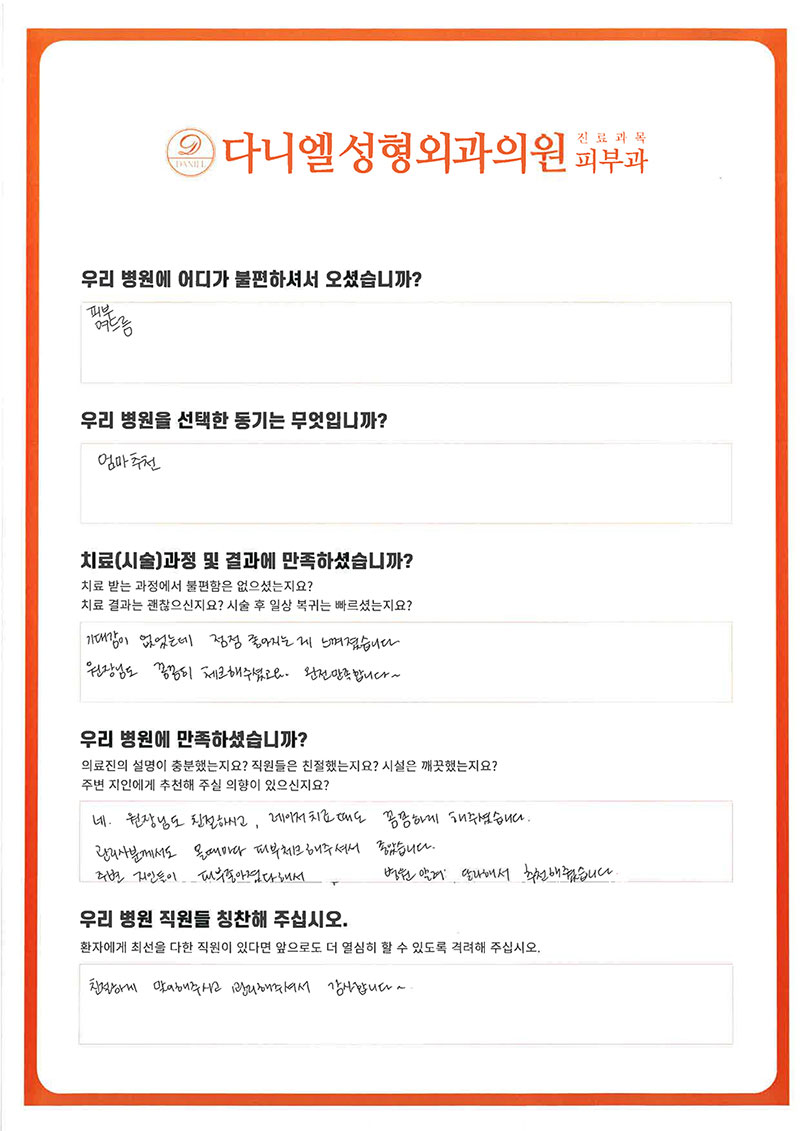 DANIEL
다니엘성형외과의원 진료과목 피부과
우리 병원에 어디가 불편하셔서 오셨습니까?
피부
여드름
우리 병원을 선택한 동기는 무엇입니까?
엄마추천
치료(시술)과정 및 결과에 만족하셨습니까?
치료 받는 과정에서 불편함은 없으셨는지요?
치료 결과는 괜찮으신지요? 시술 후 일상 복귀는 빠르셨는지요?
기대감이 없었는데 점점 좋아지는게 느껴졌습니다
원장님도 꼼꼼히 체크해주셨고요. 완전만족합니다~
우리 병원에 만족하셨습니까?
의료진의 설명이 충분했는지요? 직원들은 친절했는지요? 시설은 깨끗했는지요?
주변 지인에게 추천해 주실 의향이 있으신지요?
네. 원장님도 친절하시고, 레이저치료때도 꼼꼼하게 해주셨습니다.
관리사분께서도 올때마다 피부체크해주셔서 좋았습니다.
주변 지인들이 피부좋아졌다해서 병원 달라해서 추천해줬습니다
우리 병원 직원들 칭찬해 주십시오.
환자에게 최선을 다한 직원이 있다면 앞으로도 더 열심히 할 수 있도록 격려해 주십시오.
친절하게 맞이해주시고 관리해주셔서 감사합니다~